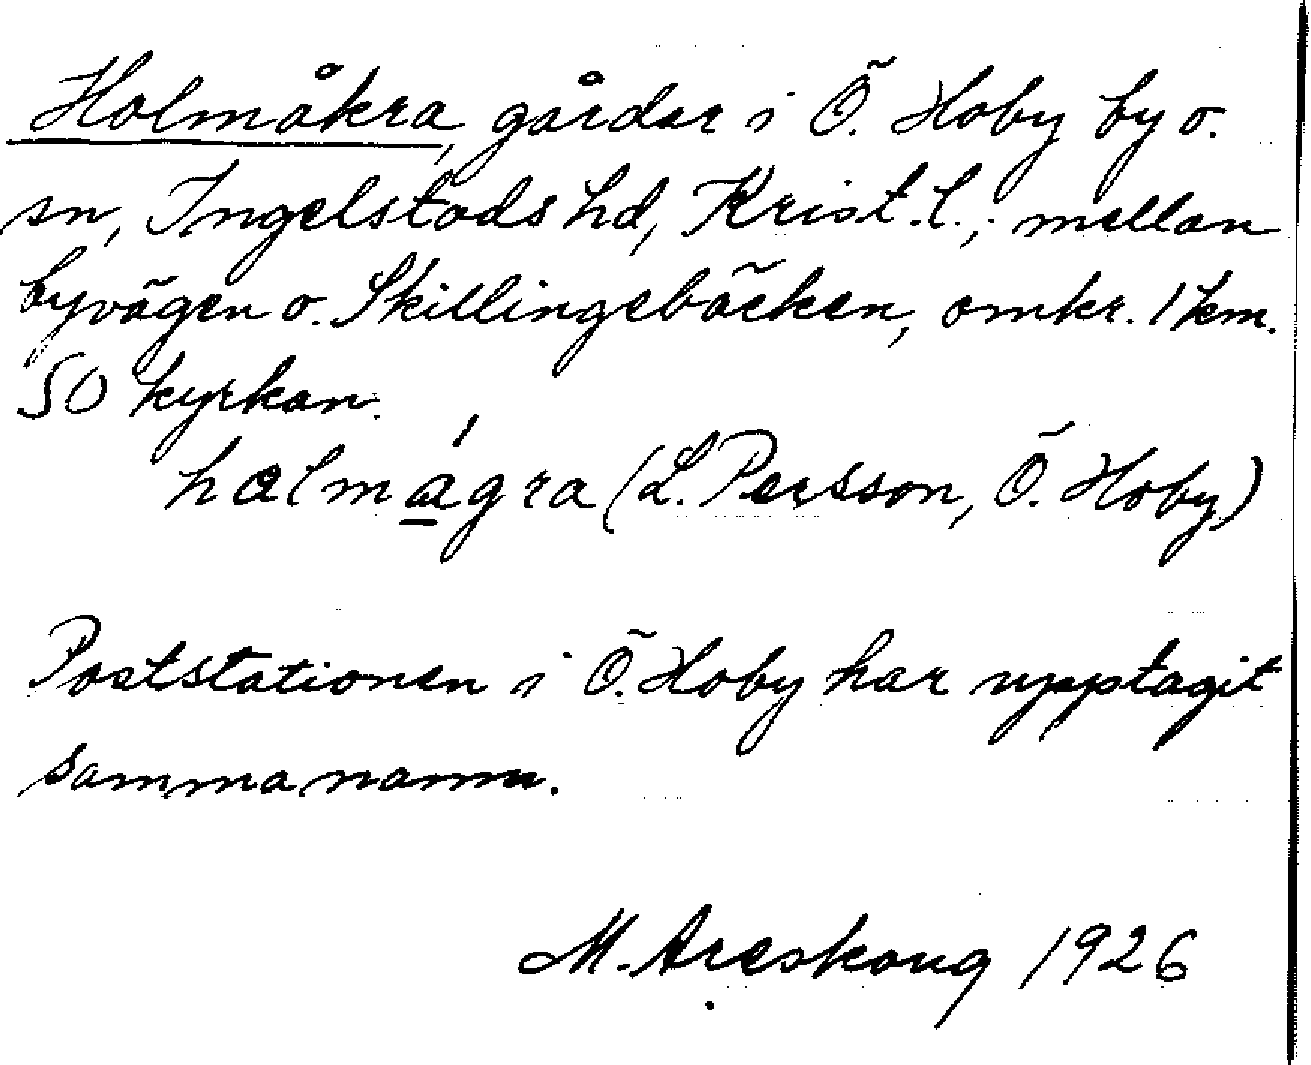 Holmåkra, gårdar i Ö. Hoby by o.
sn, Ingelstads hd, Krist. l., mellan
byvägen o. Skillingebäcken, omkr. 1 km.
SO kyrkan.
hɑlmágra (L. Persson, Ö. Hoby)
Poststationen i Ö. Hoby har upptagit
samma namn.
M. Areskoug 1926